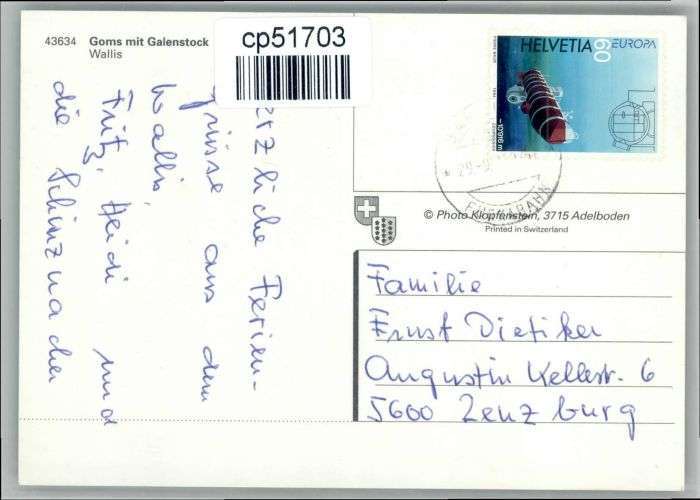 43634 Goms mit Galenstock
Wallis
cp51703
HELVETIA 60 EUROPA
-10916 m
FURKABAHN
© Photo Klopfenstein, 3715 Adelboden
Printed in Switzerland
Herzliche Ferien-
grüsse aus dem
Wallis,
Fritz, Heidi und
die Schinznacher
Familie
Ernst Dietiker
Augustin Kellerstr. 6
5600 Lenzburg